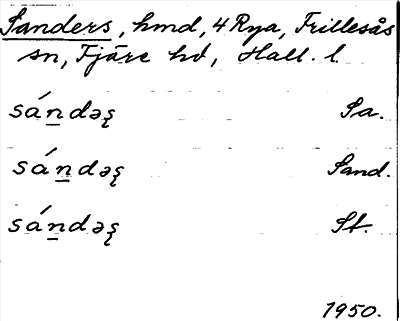 Sanders, hmd, 4 Rya, Frillesås
sn, Fjäre hd, Hall. l.
sá́n̲dəʂ Sa.
sá́n̲dəʂ Sand.
sá́n̲dəʂ St.
1950.